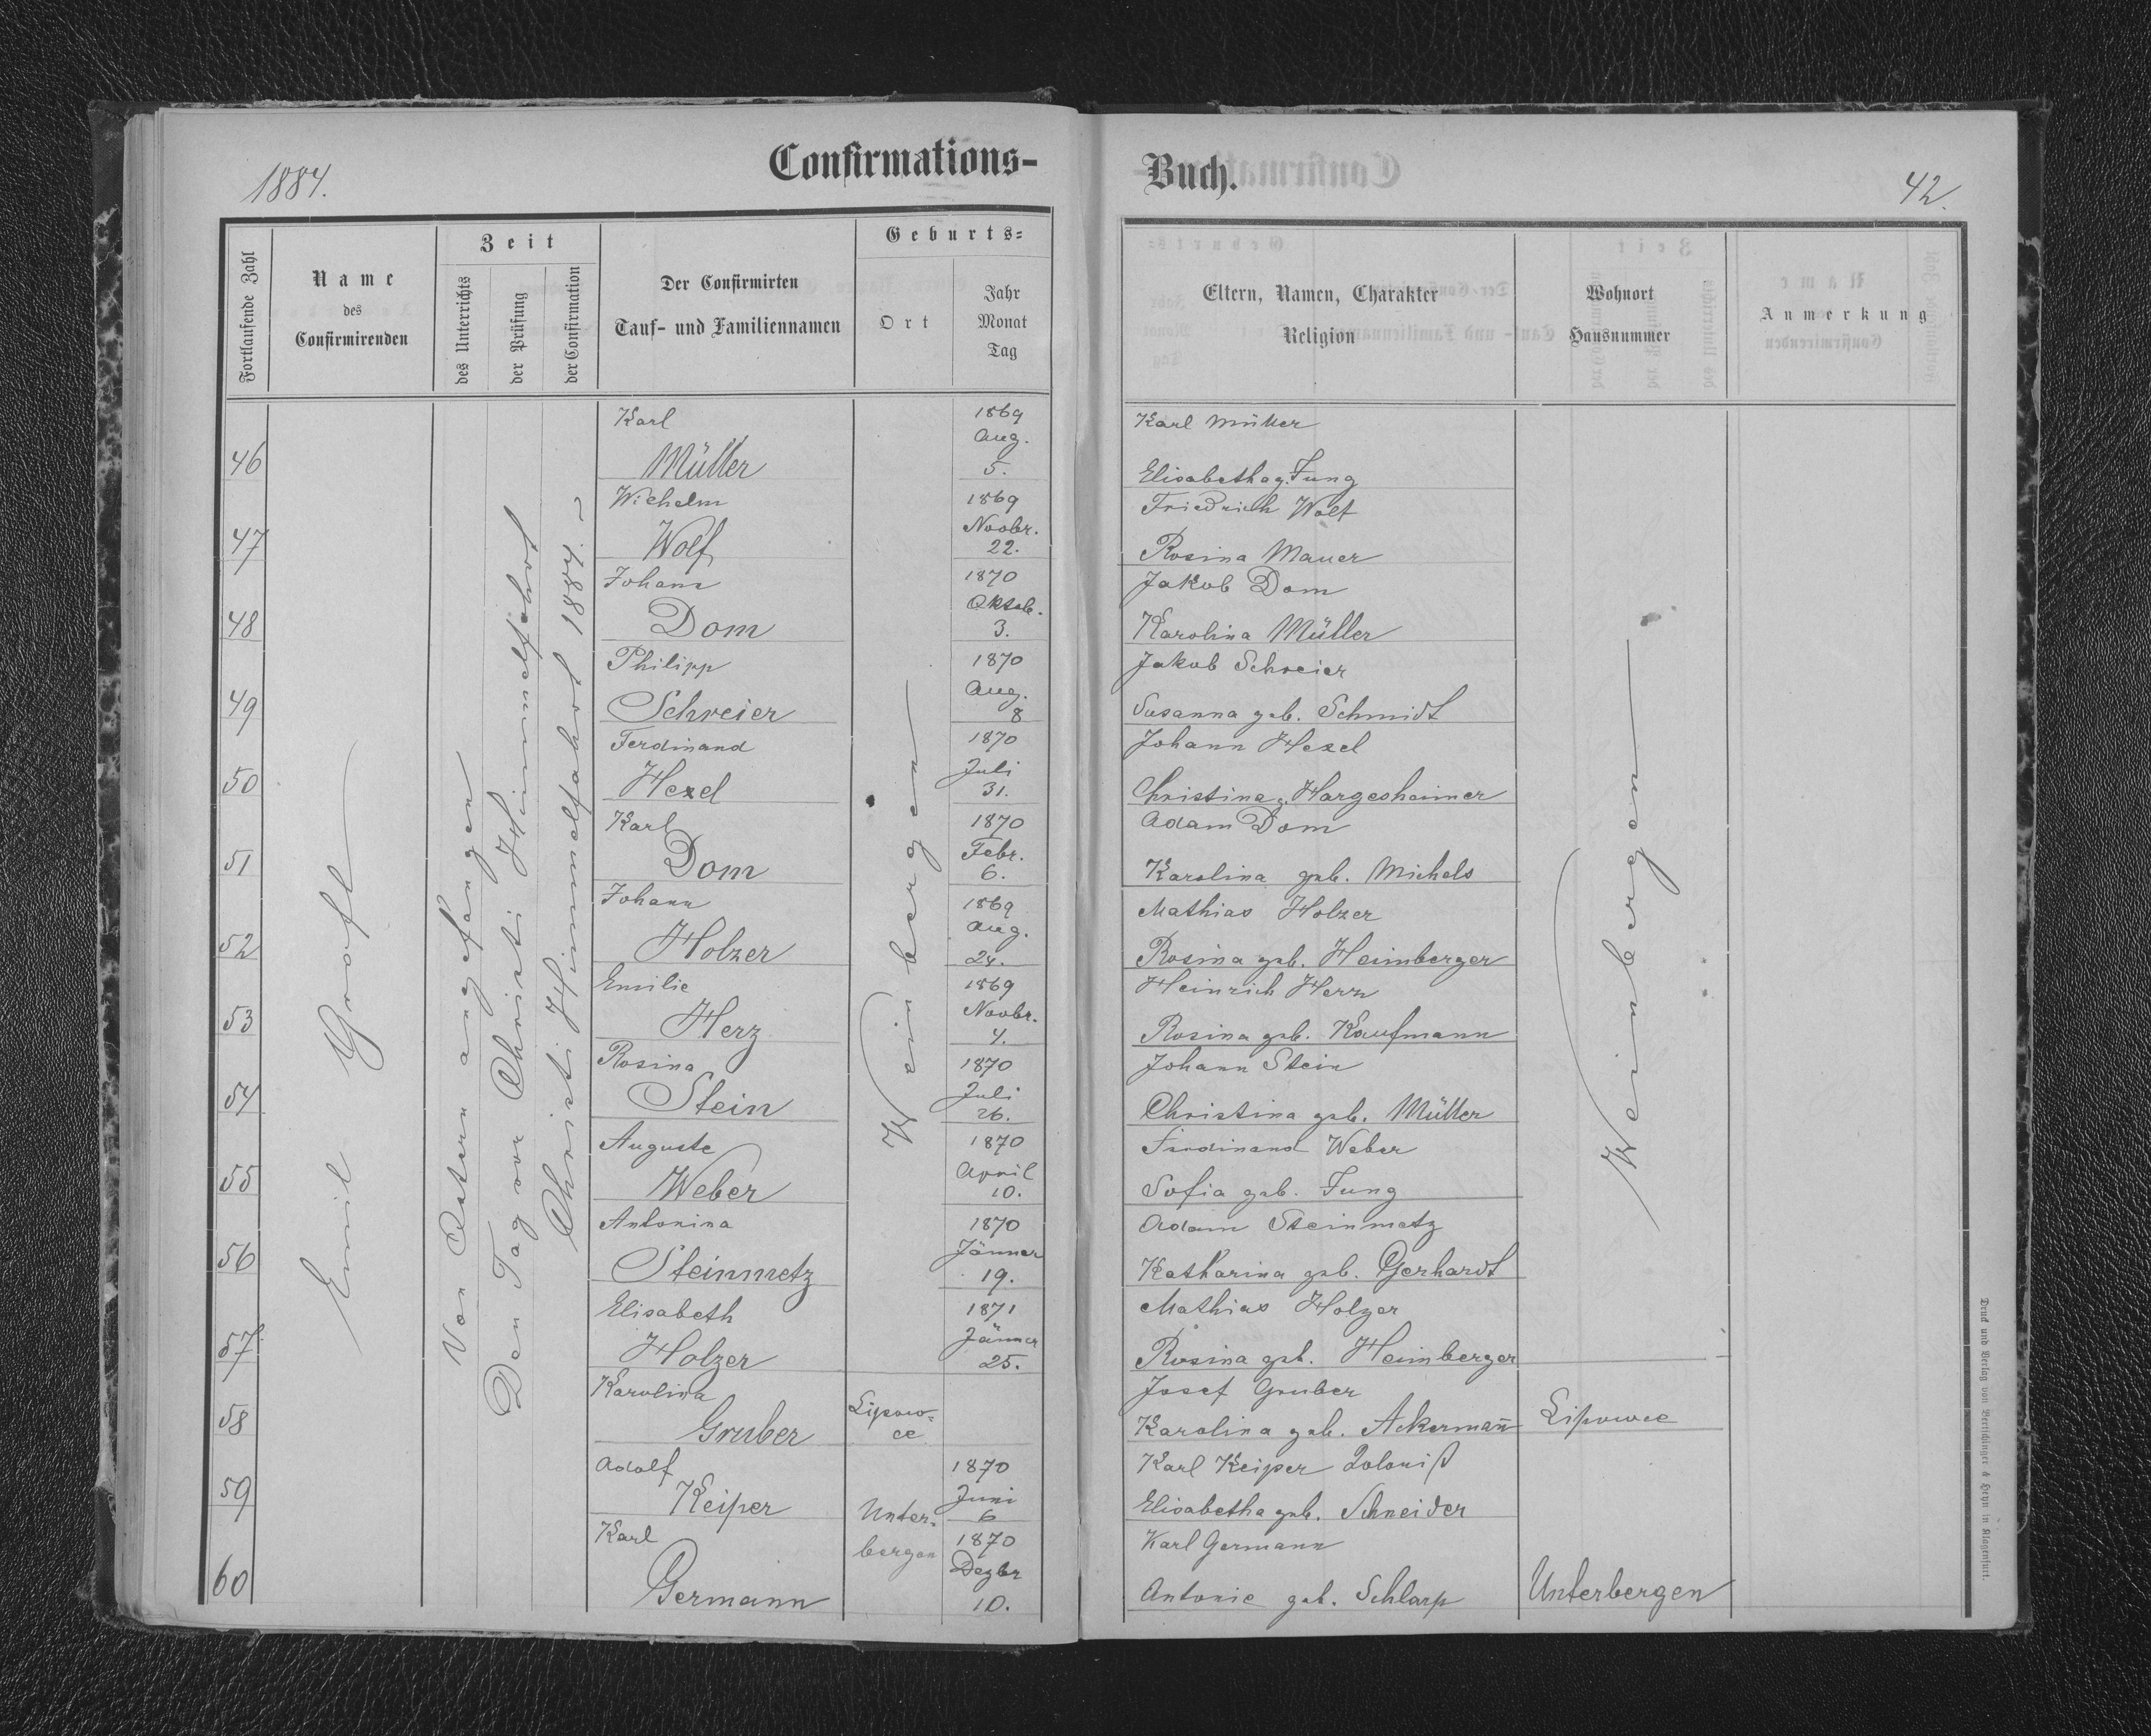 1884.
Confirmations-
Buch.
42.
Fortlaufende Zahl
Name
des
Confirmirenden
Zeit
des Unterrichts
der Prüfung
der Confirmation
Der Confirmirten
Tauf- und Familiennamen
Geburts-
Ort
Jahr
Monat
Tag
Eltern, Namen, Charakter
Religion
Wohnort
Hausnummer
Anmerkung
Emil Groft
Von Ostern angefangen
Den Tag vor Christi Himmelfahrt
Christi Himmelfahrt 1884.
Weinbergen
Weinbergen
46
Karl
Müller
1869
Aug.
5.
Karl Müller
Elisabetha g. Jung
47
Wilhelm
Wolf
1869
Novbr.
22.
Friedrich Wolf
Rosina Mauer
48
Johann
Dom
1870
Oktob.
3.
Jakob Dom
Karolina Müller
49
Philipp
Schreier
1870
Aug.
8
Jakob Schreier
Susanna geb. Schmidt
50
Ferdinand
Hexel
1870
Juli
31.
Johann Hexel
Christina g. Hargesheimer
51
Karl
Dom
1870
Febr.
6.
Adam Dom
Karolina geb. Michels
52
Johann
Holzer
1869
Aug.
24.
Mathias Holzer
Rosina geb. Heimberger
53
Emilie
Herz
1869
Novbr.
4.
Heinrich Herz
Rosina geb. Kaufmann
54
Rosina
Stein
1870
Juli
26.
Johann Stein
Christina geb. Müller
55
Auguste
Weber
1870
April
10.
Ferdinand Weber
Sofia geb. Jung
56
Antonina
Steinmetz
1870
Jänner
19.
Adam Steinmetz
Katharina geb. Gerhardt
57
Elisabeth
Holzer
1871
Jänner
25.
Mathias Holzer
Rosina geb. Heimberger
58
Karolina
Gruber
Lipow-
ce
Josef Gruber
Karolina geb. Ackermañ
Lipowce
59
Adolf
Keiper
Unter-
bergen
1870
Juni
6
Karl Keiper Kolonist
Elisabetha geb. Schneider
60
Karl
Germann
1870
Dezbr
10.
Karl Germann
Antonie geb. Schlarp
Unterbergen
Druck und Verlag von Bertschinger & Heyn in Klagenfurt.